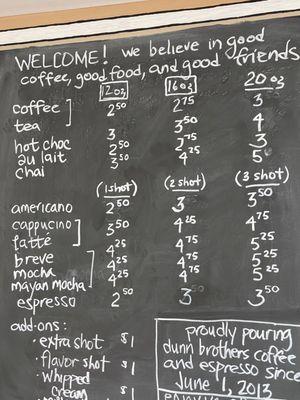 WELCOME! we believe in good
coffee, good food, and good friends
12oz 16oz 20oz
coffee 2 50 2 75 3
tea
hot choc 3 3 50 4
au lait 2 50 2 75 3
chai 3 50 4 25 5
(1 shot) (2 shot) (3 shot)
americano 2 50 3 3 50
cappucino 3 50 4 25 4 75
latté
breve 4 25 4 75 5 25
mocha 4 25 4 75 5 25
mayan mocha 4 25 4 75 5 25
espresso 2 50 3 50 3 50
add-ons:
• extra shot $1
• flavor shot $1
• whipped
cream $1
proudly pouring
dunn brothers coffee
and espresso since
June 1, 2013